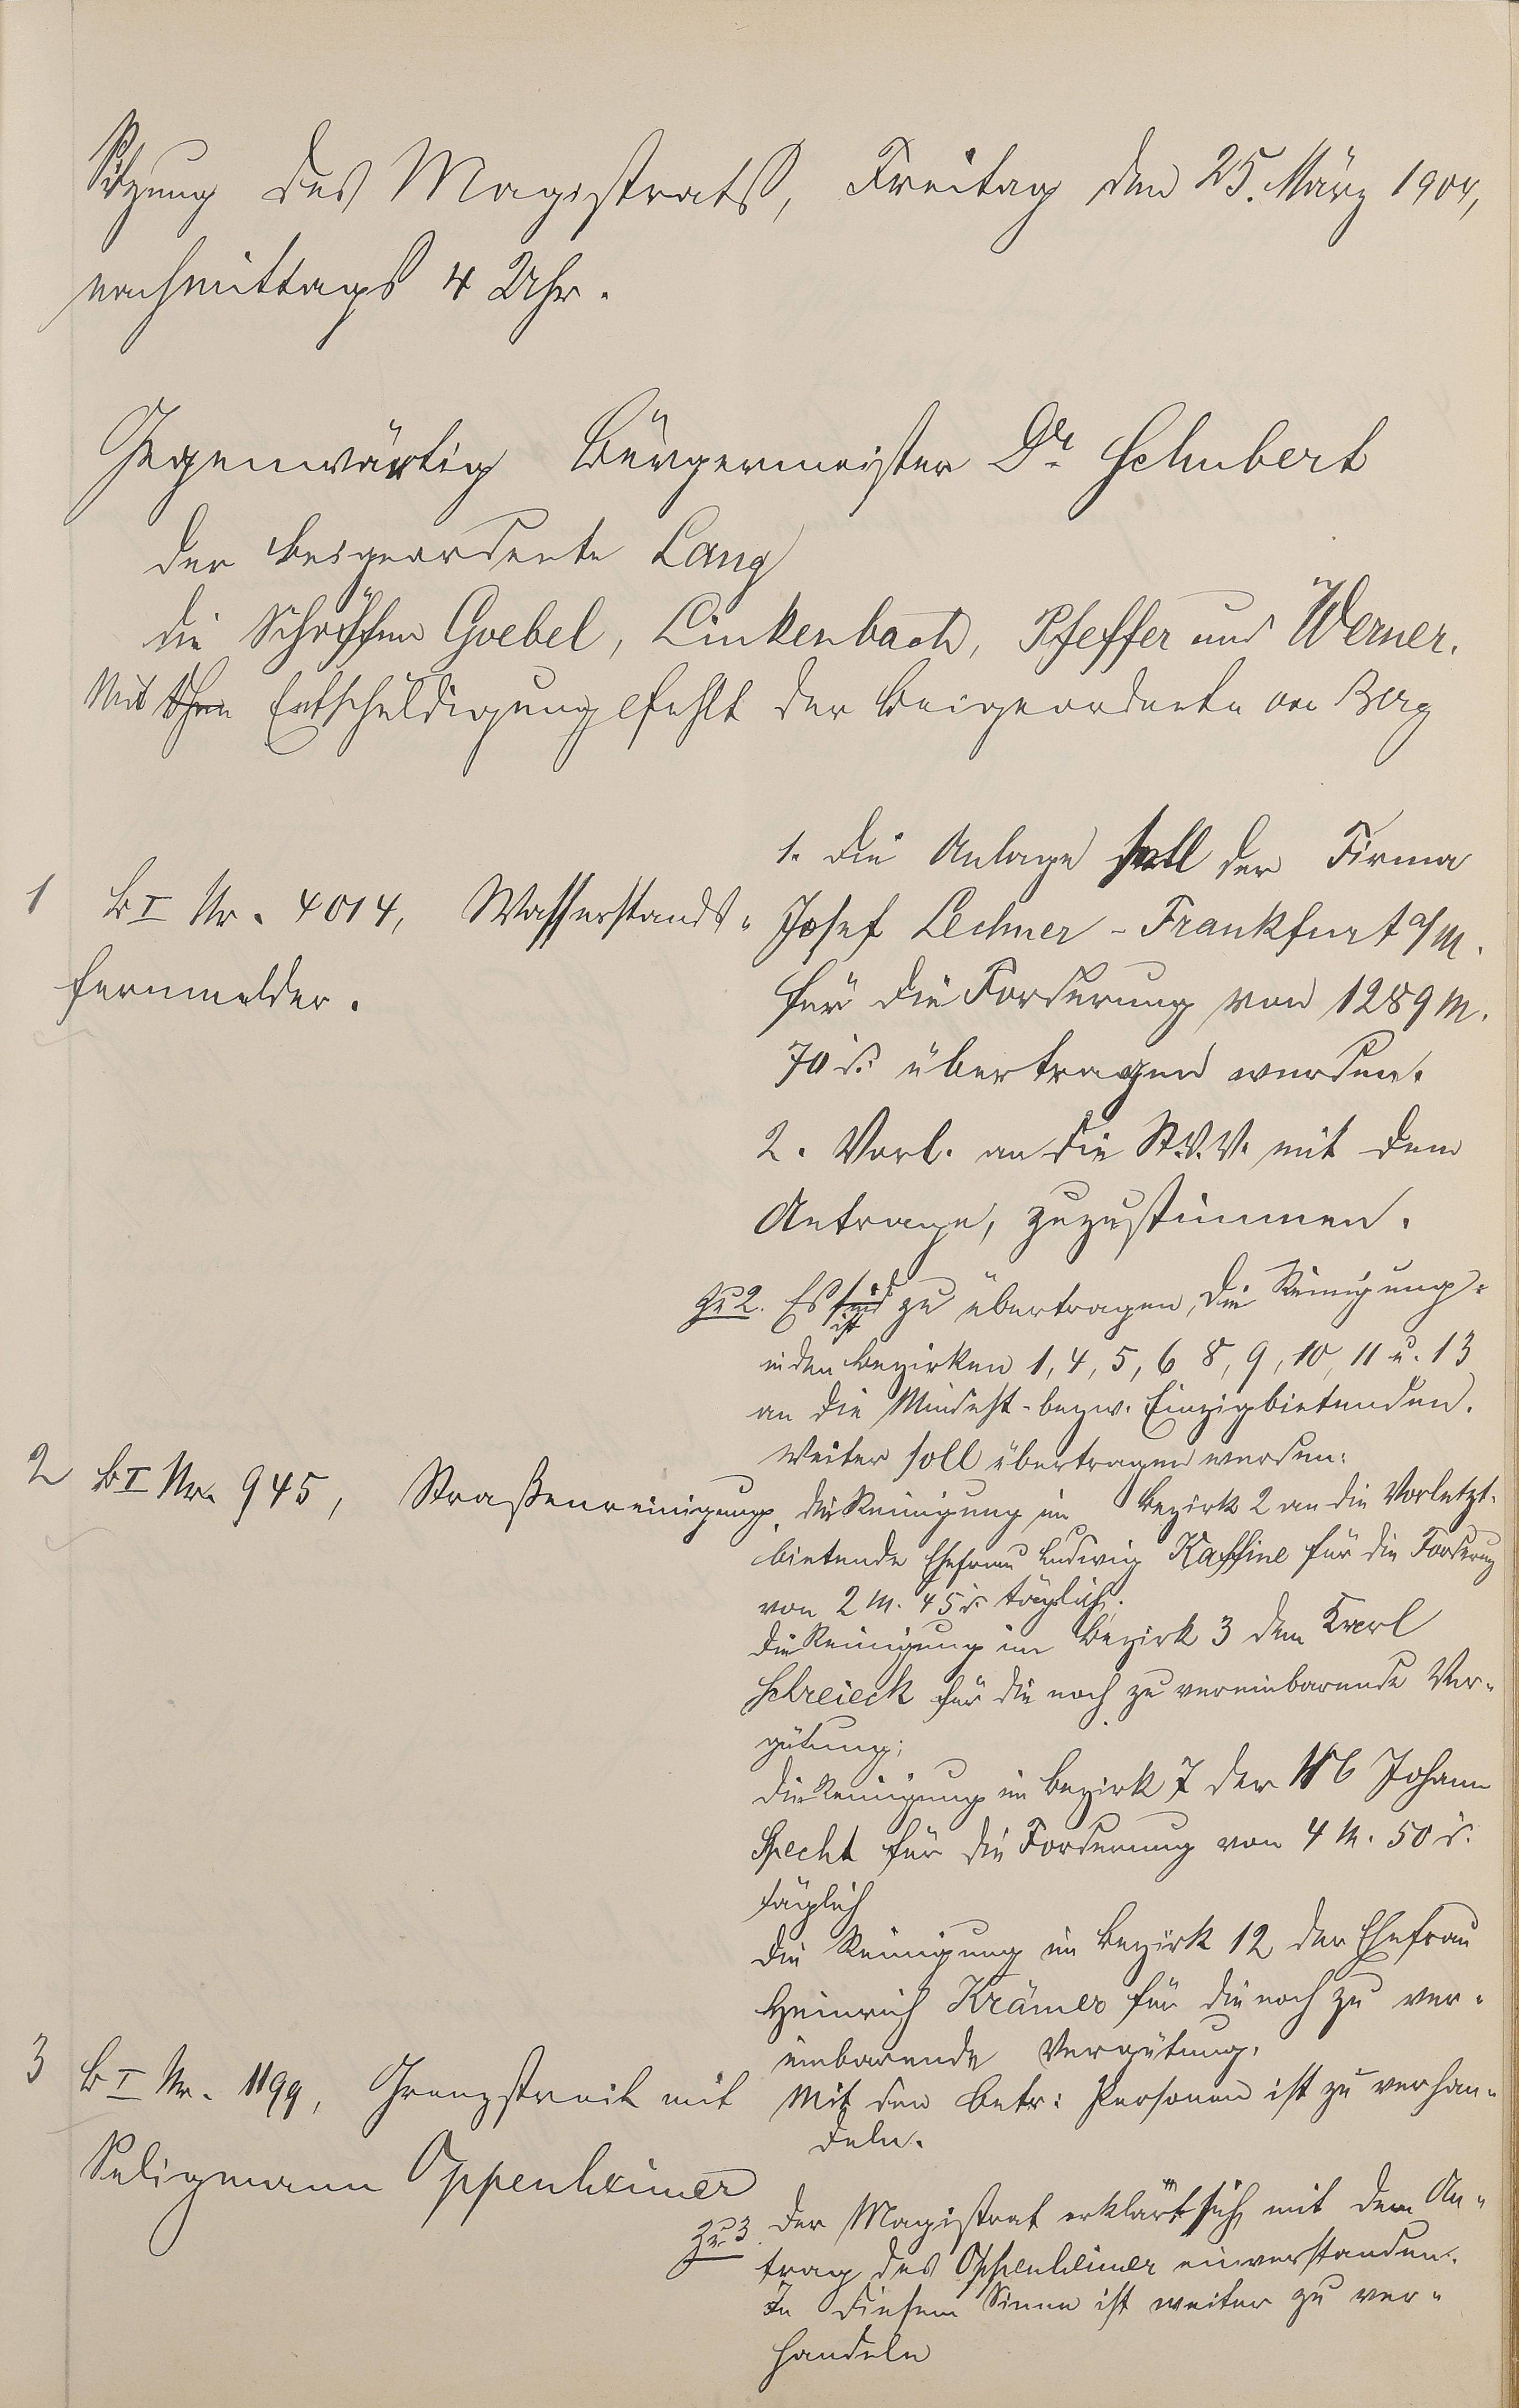 Sitzung des Magistrats, Freitag den 25. März 1904,
nachmittags 4 Uhr.
Gegenwärtig Bürgermeister Dr. Schubert
der Beigeordnete Lang
die Schöffen Goebel, Linkenbach, Pfeffer und Werner.
Mit Entschuldigung fehlt der Beigeordnete
1 B I Nr. 4014, Wasserstands-
fernmelder.
1. Die Anlage soll der Firma
Josef Lechner - Frankfurt a/M.
für die Forderung von 1289 M.
70 ₰ übertragen werden.
2. Vorl. an die St.V.V. mit dem
Antrage, zuzustimmen.
2 B I Nr. 945, Straßenreinigung.
zu 2. Es sind ist zu übertragen, die Reinigung
in den Bezirken 1, 4, 5, 6 8, 9, 10, 11 u. 13
an die Mindest- bezw. Einzigbietenden.
Weiter soll übertragen werden:
die Reinigung im Bezirk 2 an die Vorletzt-
bietende Ehefrau Ludwig Kaffine für die Forderung
von 2 M. 45 ₰ täglich.
die Reinigung im Bezirk 3 dem Karl
Schreieck für die noch zu vereinbarende Ver-
gütung;
die Reinigung im Bezirk 7 der Johann
Specht für die Forderung von 4 M. 50 ₰
täglich
die Reinigung im Bezirk 12 der Ehefrau
Heinrich Krämer für die noch zu ver-
einbarende Vergütung.
Mit den betr: Personen ist zu verhan-
deln.
3 B I Nr. 1199, Grenzstreit mit
Seligmann Oppenheimer
zu 3. Der Magistrat erklärt sich mit dem An-
trag des Oppenheimer einverstanden.
In diesem Sinne ist weiter zu ver-
handeln